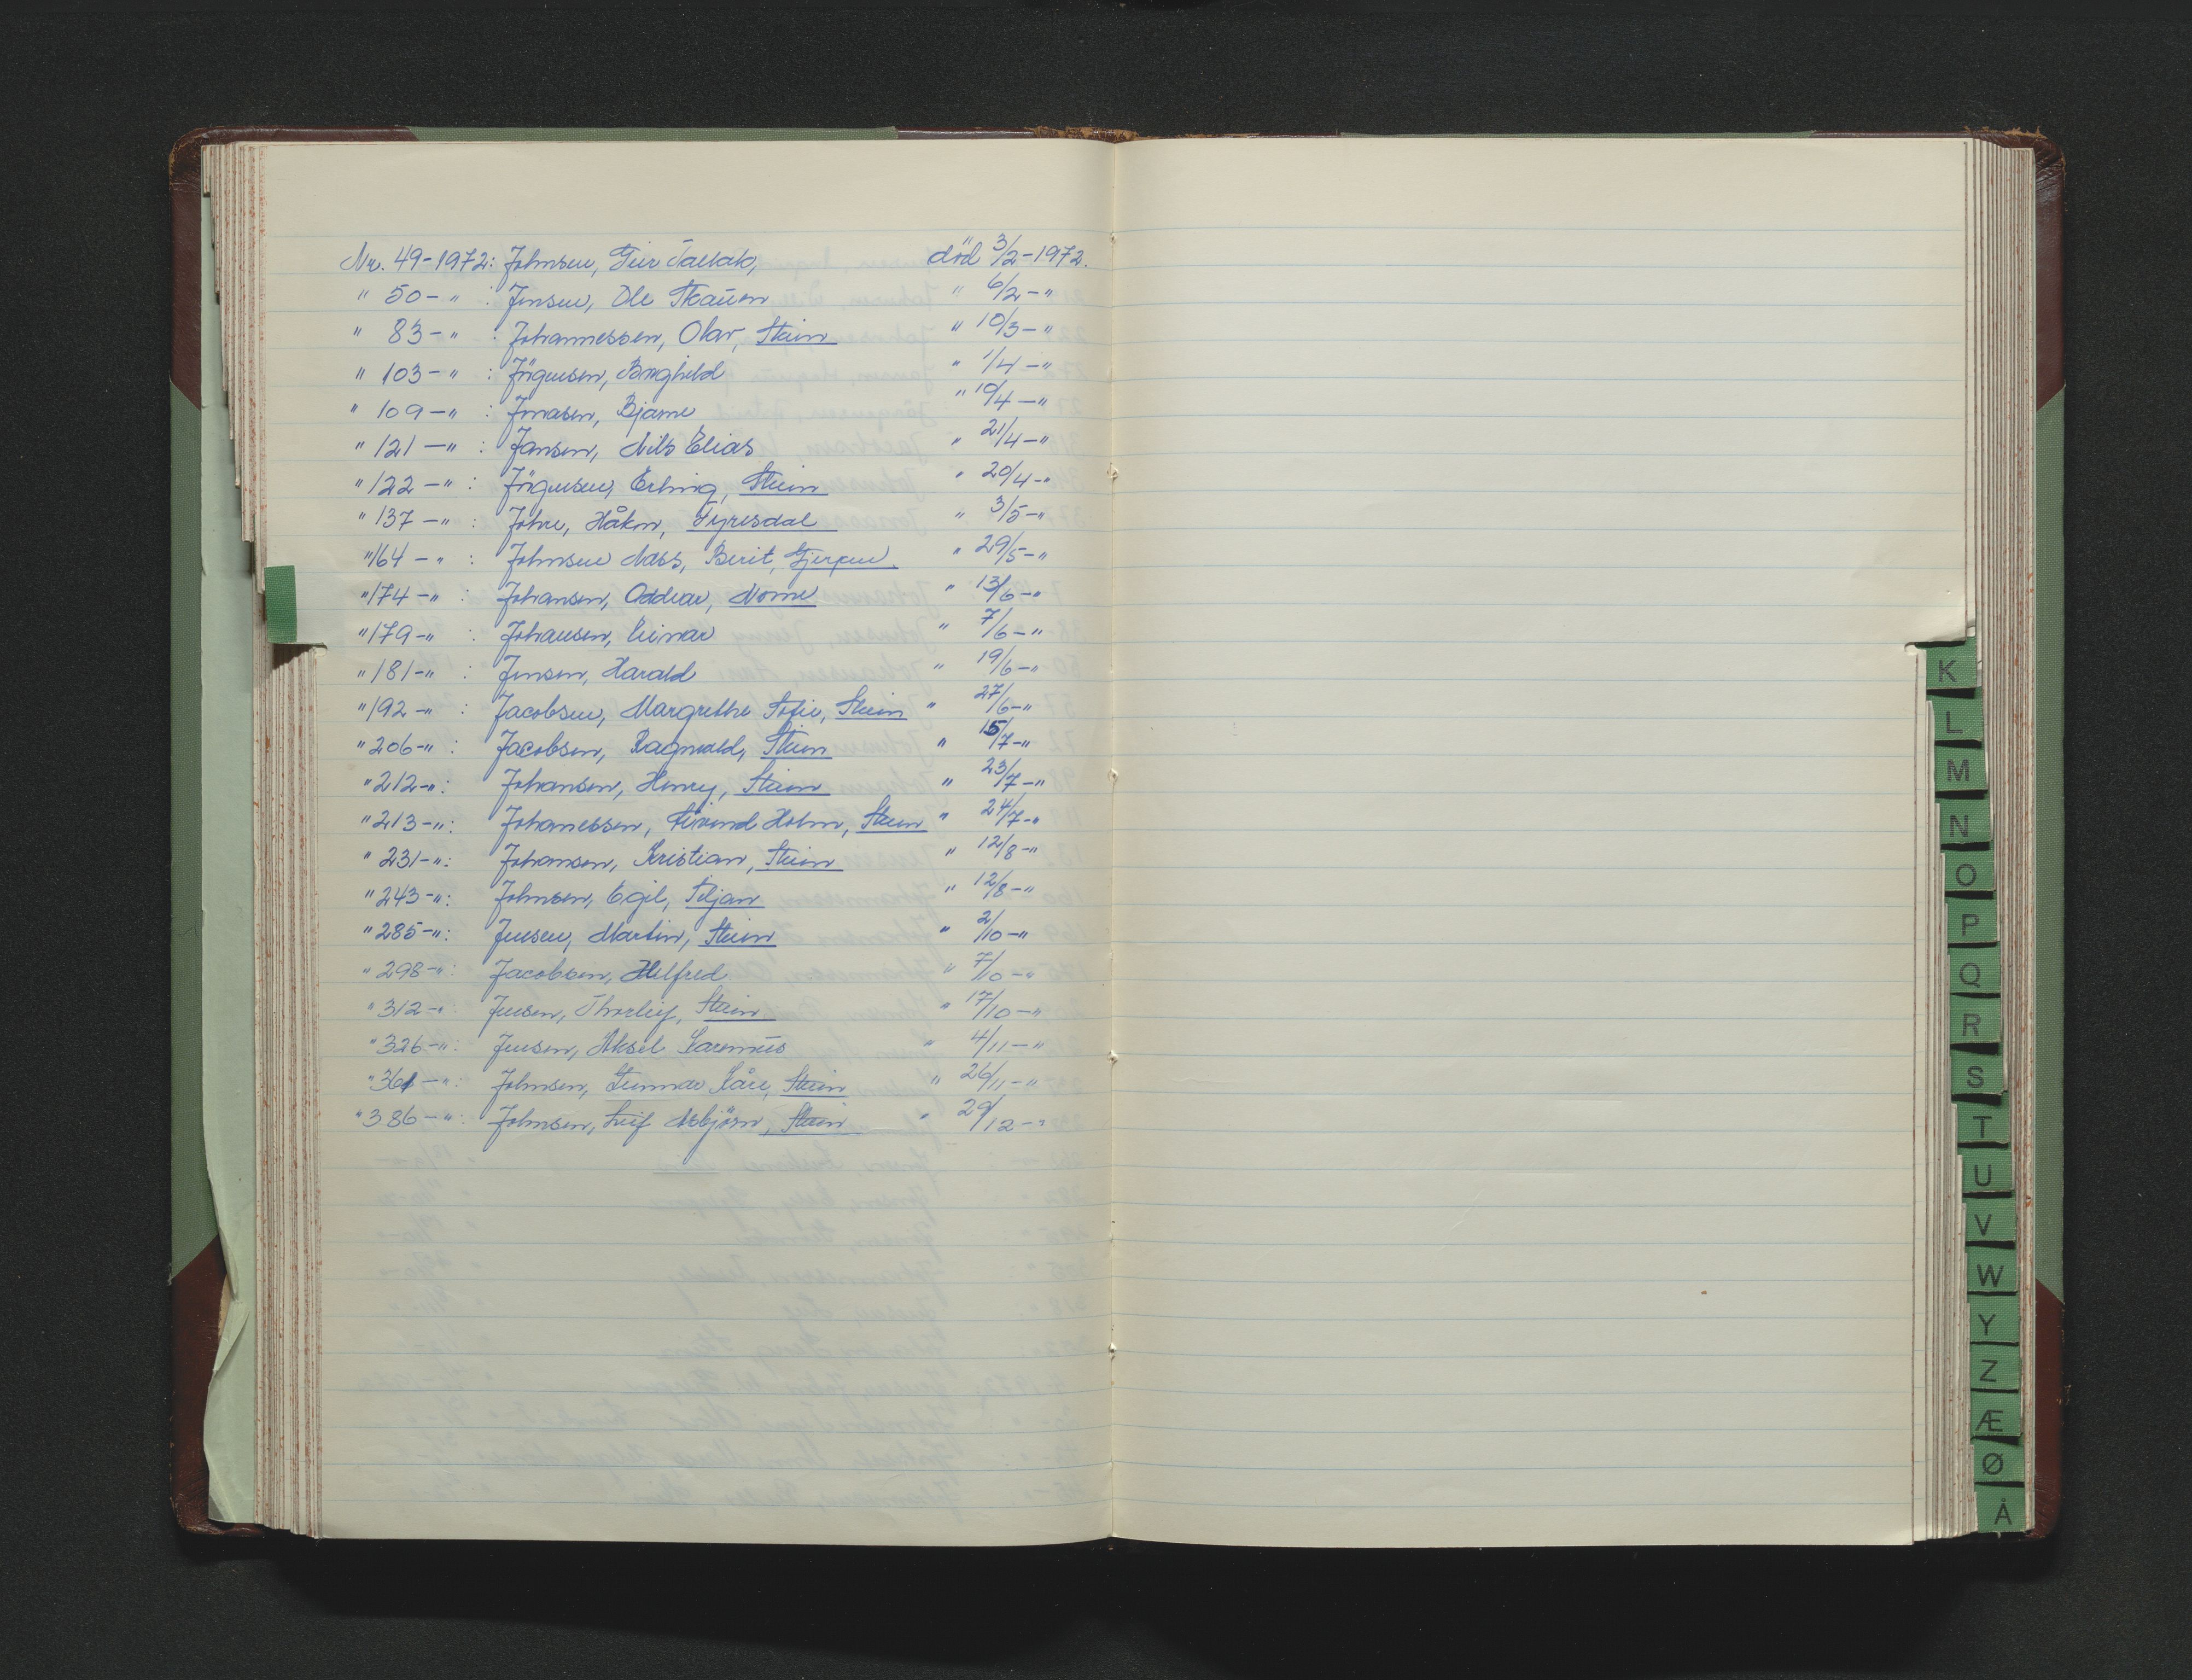 Nr. 49-1972: Johnsen, Geir Tallak, död 3/2-1972.
" 50- " : Jensen, Ole Skauen " 6/2-"
" 83- " : Johannessen, Olav, Skien " 10/3-"
" 103- " : Jörgensen, Borghild " 1/4-"
" 109- " : Jonasen, Bjarne " 10/4-"
" 121-" : Jansen, Nils Elias " 21/4-"
" 122-" : Jörgensen, Erling, Skien " 20/4-"
" 137-" : Johre, Håkon, Fyresdal " 3/5-"
" 164-" : Johnsen Nass, Berit, Gjerpen " 29/5-"
" 174-" : Johansen, Oddvar, Nome " 13/6-"
" 179-" : Johansen, Einar " 7/6-"
" 181-" : Jensen, Harald " 19/6-"
" 192-" : Jacobsen, Margrethe Sofie, Skien " 27/6-"
" 206-" : Jacobsen, Ragnvald, Skien " 15/7-"
" 212-" : Johansen, Henry, Skien " 23/7-"
" 213-" : Johanessen, Eivind Holm, Skien " 24/7-"
" 231-" : Johansen, Kristian, Skien " 12/8-"
" 243-" : Johnsen, Egil, Siljan " 12/8-"
" 285-" : Jensen, Martin, Skien " 2/10-"
" 298-" : Jacobsen, Helfred " 7/10-"
" 312-" : Jensen, Thorleif, Skien " 17/10-"
" 326-" : Jensen, Aksel Karenius " 4/11-"
" 361-" : Johnsen, Gunnar Kåre, Skien " 26/11-"
" 386-" : Johnsen, Leif Asbjörn, Skien " 29/12-"
K
L
M
N
O
P
Q
R
S
T
U
V
W
Y
Z
Æ
Ø
Å